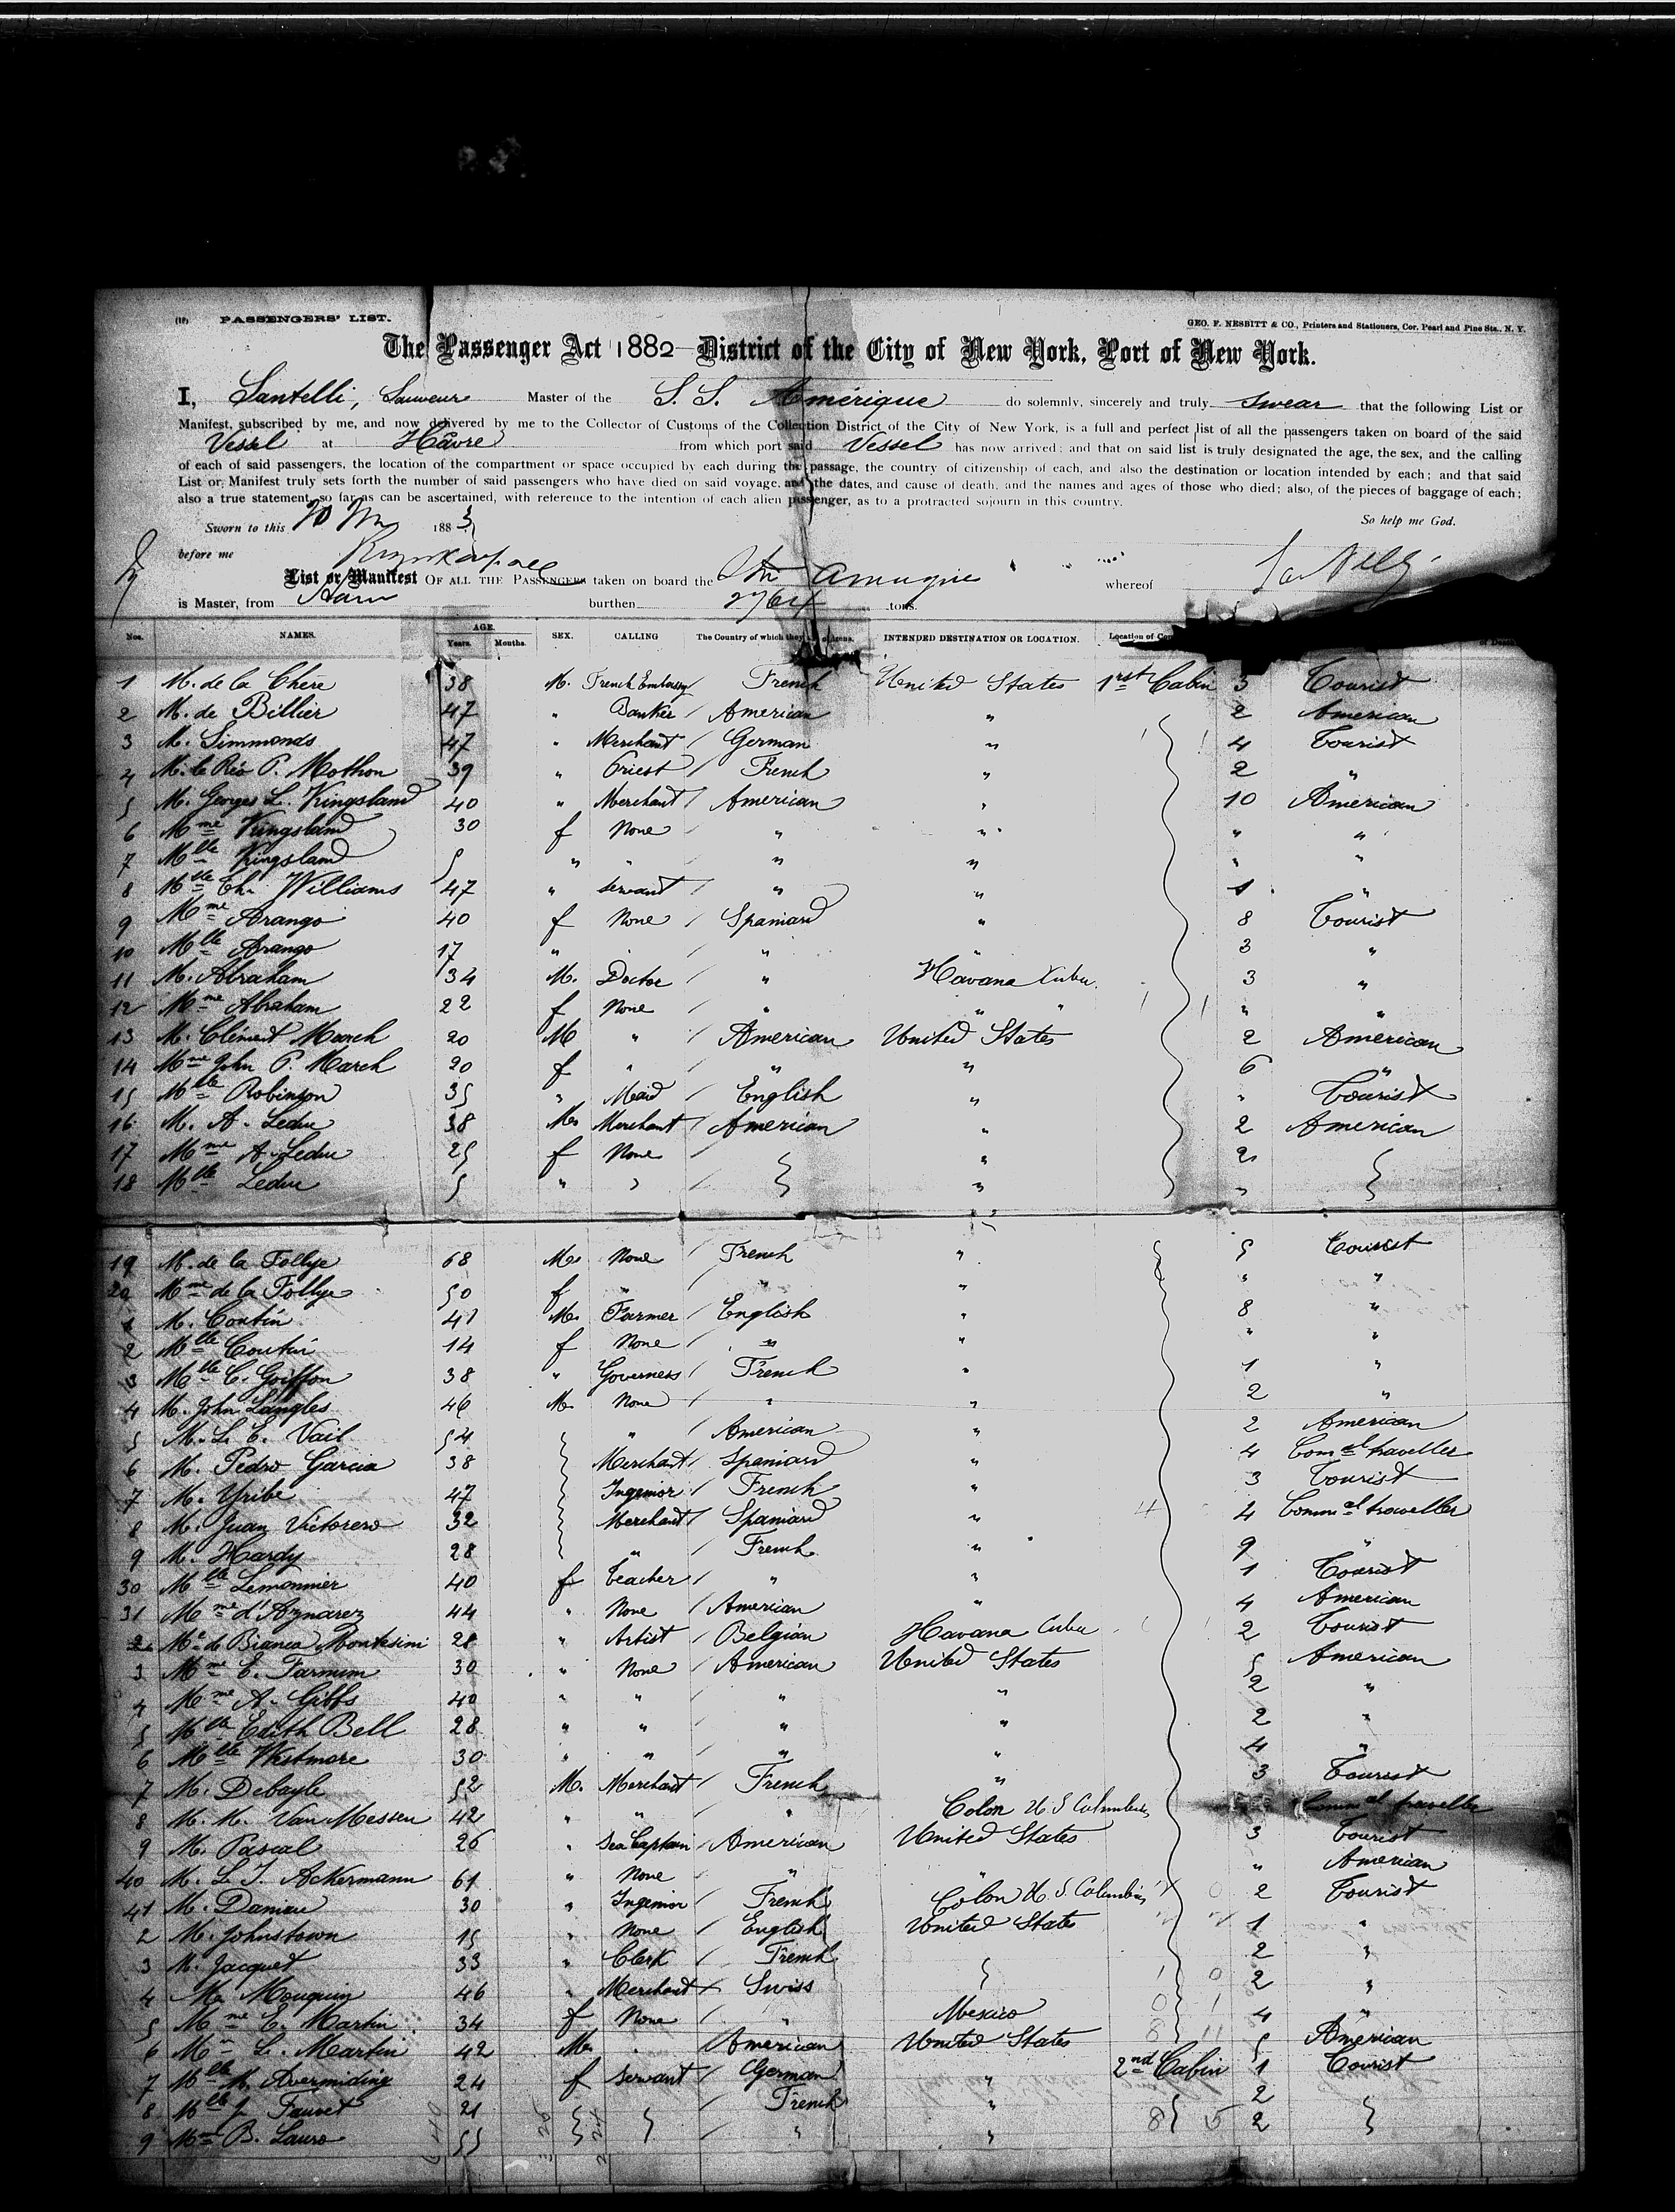 (18) PASSENGERS' LIST.
GEO. F. NESBITT & CO., Printers and Stationers, Cor. Pearl and Pine Sts., N. Y.
The Passenger Act 1882 District of the City of New York, Port of New York.
I, Santelli, Sauveur Master of the S. S. Amérique do solemnly, sincerely and truly swear that the following List or
Manifest, subscribed by me, and now delivered by me to the Collector of Customs of the Collection District of the City of New York, is a full and perfect list of all the passengers taken on board of the said
Vessel at Hâvre from which port said Vessel has now arrived; and that on said list is truly designated the age, the sex, and the calling
of each of said passengers, the location of the compartment or space occupied by each during the passage, the country of citizenship of each, and also the destination or location intended by each; and that said
List or Manifest truly sets forth the number of said passengers who have died on said voyage, and the dates, and cause of death, and the names and ages of those who died; also, of the pieces of baggage of each;
also a true statement, so far as can be ascertained, with reference to the intention of each alien passenger, as to a protracted sojourn in this country.
Sworn to this 188 So help me God.
before me
List or Manifest OF ALL THE PASSENGERS taken on board the whereof
is Master, from burthen 2764 tons.
Nos. NAMES. AGE. Years. Months. SEX. CALLING The Country of which they INTENDED DESTINATION OR LOCATION. Location of
1 M. de la Chère 38 M. French Embassy French United States 1rst Cabin 3 Tourist
2 M. de Billier 47 " Banker American " 2 American
3 M. Simmonds 47 " Merchant German " 4 Tourist
4 M. le Rév P. Mothon 39 " Priest French " 2 "
5 M. Georges L. Kingsland 40 " Merchant American " 10 American
6 Mme Kingsland 30 f None " " " "
7 Mlle Kingsland 5 " " " " " "
8 Mlle Th. Williams 47 " servant " " 1 "
9 Mme Arango 40 f None Spaniard " 8 Tourist
10 Mlle Arango 17 " " " " 3 "
11 M. Abraham 34 M. Doctor " Havana Cuba 3 "
12 Mme Abraham 22 f None " " " " "
13 M. Clément March 20 M " American United States 2 American
14 Mme John P. March 20 f " " " 6 "
15 Mlle Robinson 35 " Maid English " " Tourist
16 M. A. Leduc 38 M. Merchant American " 2 American
17 Mme A. Leduc 25 f None " 2
18 Mlle Leduc 5 " " " "
19 M. de la Follye 68 M. None French " 5 Tourist
20 Mme de la Follye 50 f " " " " "
1 M. Contin 41 M. Farmer English " 8 "
2 Mlle Contin 14 f None " " " "
3 Mlle C. Goiffon 38 " Governess French " 1 "
4 M. John Langles 46 M. None " " 2 "
5 M. L. E. Vail 54 " American " 2 American
6 M. Pedro Garcia 38 Merchant Spaniard " 4 Comal traveller
7 M. Yribe 47 Ingenior French " 3 Tourist
8 M. Juan Victorero 32 Merchant Spaniard " 4 Commal traveller
9 M. Hardy 28 " French " 9 "
30 Mlle Lemonnier 40 f Teacher " " 1 Tourist
31 Mme d'Aznarez 44 " None American " 4 American
2 Me de Bianca Montesini 28 " Artist Belgian Havana Cuba 2 Tourist
3 Mme E. Farmim 30 " None American United States 5 American
4 Mme A. Gibbs 40 " " " " 2 "
5 Mlle Edith Bell 28 " " " " 2 "
6 Mlle Westmore 30 " " " " 4 "
7 M. Debayle 52 M. Merchant French " 3 Tourist
8 M. M. Van Messen 42 " " " Colon U. S Columbia Commal traveller
9 M. Pascal 26 " Sea Captain American United States 3 Tourist
40 M. L. J. Ackermann 61 " None " " " American
41 M. Daniau 30 " Ingenior French Colon U. S. Columbia 2 Tourist
2 M. Johnstown 15 " None English United States 1 "
3 M. Jacquet 33 " Clerk French 2 "
4 M. Mouquin 46 " Merchant Swiss 2 "
5 Mme E. Martin 34 f None " Mexico 4 "
6 M. L. Martin 42 M. " American United States 5 American
7 Mlle Avermiding 24 f servant German " 2nd Cabin 1 Tourist
8 Mlle J. Fauret 21 French " 2
9 Mme B. Laure 55 " " 2